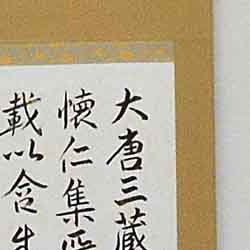 大唐三藏
懷仁集
載以含